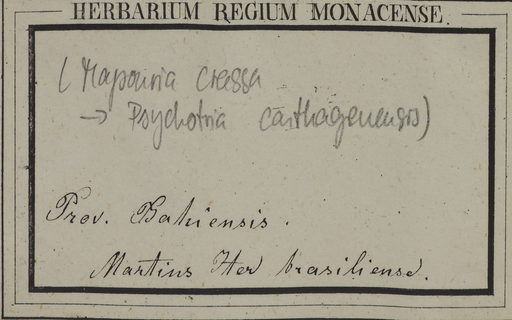 HERBARIUM REGIUM MONACENSE.
(Mapouria crassa
→ Psychotria carthagenensis)
Prov. Bahiensis.
Martius Iter brasiliense.